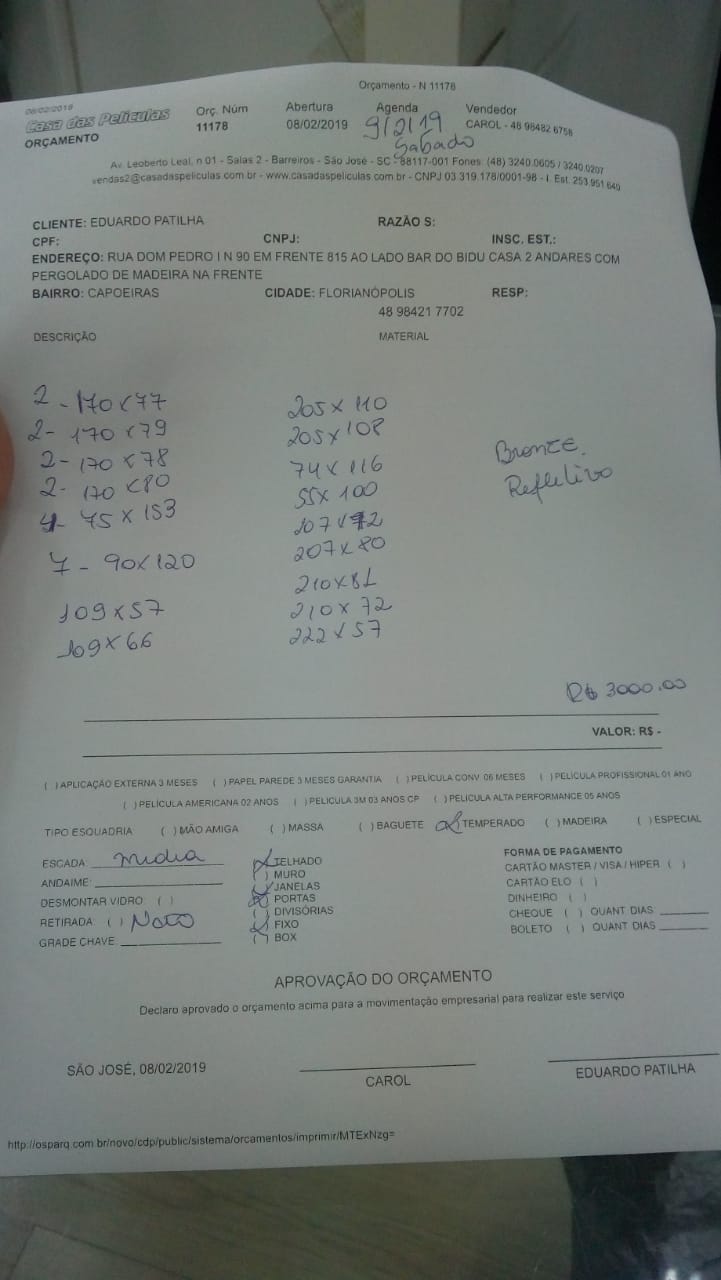 Orçamento - N 11178
08/02/2019
Casa das Películas
ORÇAMENTO
Orç. Núm
11178
Abertura
08/02/2019
Agenda
9/2/19
Sabado
Vendedor
CAROL - 48 98482 6758
Av. Leoberto Leal, n 01 - Salas 2 - Barreiros - São José - SC - 88117-001 Fones: (48) 3240.0605 / 3240.0207
vendas2@casadaspeliculas.com.br - www.casadaspeliculas.com.br - CNPJ 03.319.178/0001-98 - I. Est. 253.951.640
CLIENTE: EDUARDO PATILHA RAZÃO S:
CPF: CNPJ: INSC. EST.:
ENDEREÇO: RUA DOM PEDRO I N 90 EM FRENTE 815 AO LADO BAR DO BIDU CASA 2 ANDARES COM
PERGOLADO DE MADEIRA NA FRENTE
BAIRRO: CAPOEIRAS CIDADE: FLORIANÓPOLIS RESP:
48 98421 7702
DESCRIÇÃO MATERIAL
2 - 170 x 77
2 - 170 x 79
2 - 170 x 78
2 - 170 x 80
4 - 45 x 153
7 - 90 x 120
109 x 57
109 x 66
205 x 110
205 x 108
74 x 116
55 x 100
207 x 72
207 x 80
210 x 81
210 x 72
222 x 57
Bronze.
Refletivo
R$ 3000.00
VALOR: R$ -
( ) APLICAÇÃO EXTERNA 3 MESES ( ) PAPEL PAREDE 3 MESES GARANTIA ( ) PELÍCULA CONV. 06 MESES ( ) PELÍCULA PROFISSIONAL 01 ANO
( ) PELÍCULA AMERICANA 02 ANOS ( ) PELICULA 3M 03 ANOS CP ( ) PELICULA ALTA PERFORMANCE 05 ANOS
TIPO ESQUADRIA ( ) MÃO AMIGA ( ) MASSA ( ) BAGUETE (x) TEMPERADO ( ) MADEIRA ( ) ESPECIAL
ESCADA: midia
ANDAIME:
DESMONTAR VIDRO: ( )
RETIRADA: ( ) Nato
GRADE CHAVE:
(x) TELHADO
( ) MURO
(x) JANELAS
(x) PORTAS
( ) DIVISÓRIAS
(x) FIXO
( ) BOX
FORMA DE PAGAMENTO
CARTÃO MASTER / VISA / HIPER ( )
CARTÃO ELO ( )
DINHEIRO ( )
CHEQUE ( ) QUANT DIAS
BOLETO ( ) QUANT DIAS
APROVAÇÃO DO ORÇAMENTO
Declaro aprovado o orçamento acima para a movimentação empresarial para realizar este serviço
SÃO JOSÉ, 08/02/2019
CAROL
EDUARDO PATILHA
http://osparq.com.br/novo/cdp/public/sistema/orcamentos/imprimir/MTExNzg=